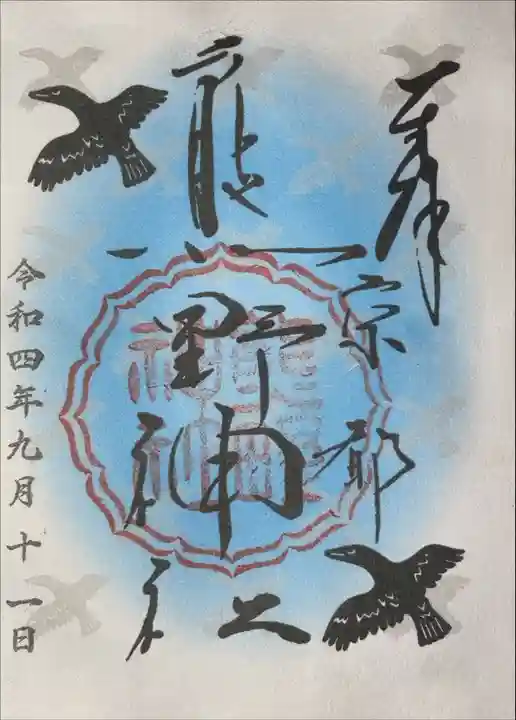 奉拝
宗都
熊野神社
令和四年九月十一日